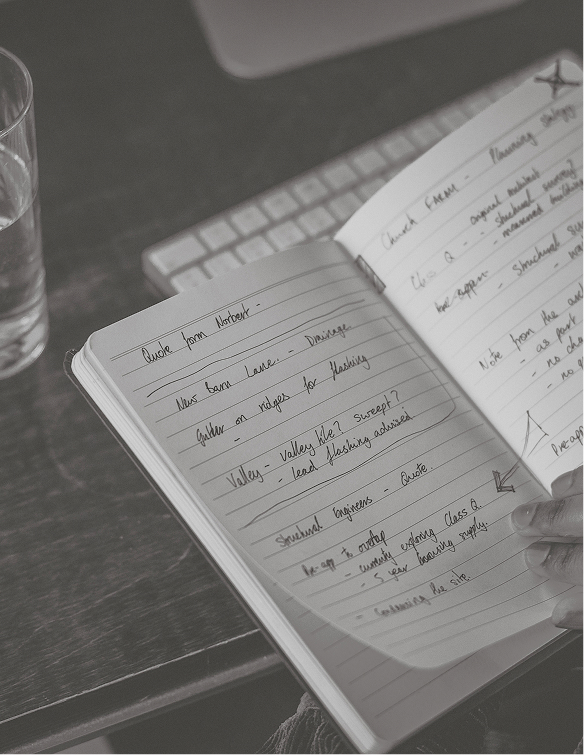 Quote form Norbert -
New Barn Lane. - Drainage.
Gutter on ridges for flashing
Valley - valley tile? sweept?
- lead flashing advised
Structural Engineers - Quote.
Pre-app to overlap
- currently exploring Class Q.
- 5 year housing supply.
- the site.
Church FARM - Planning
- original
Class Q - - structural survey?
- measured
Pre-app - structural
Note from the
- as part
- no
- no
Pre-app